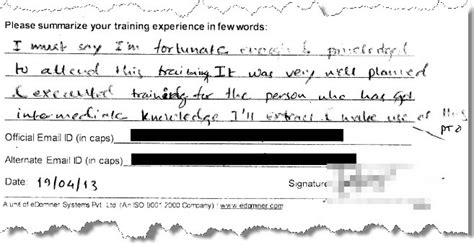 Please summarize your training experience in few words:
I must say I'm fortunate enough & privileged
to attend this training It was very well planned
& executed training for the person who has got
intermediate knowledge I'll extract & make use of
PTO
Official Email ID (in caps)
Alternate Email ID (in caps)
Date: 19/04/13 Signature
A unit of eDomner Systems Pvt. Ltd (An ISO 9001 2000 Company) www.edomner.com